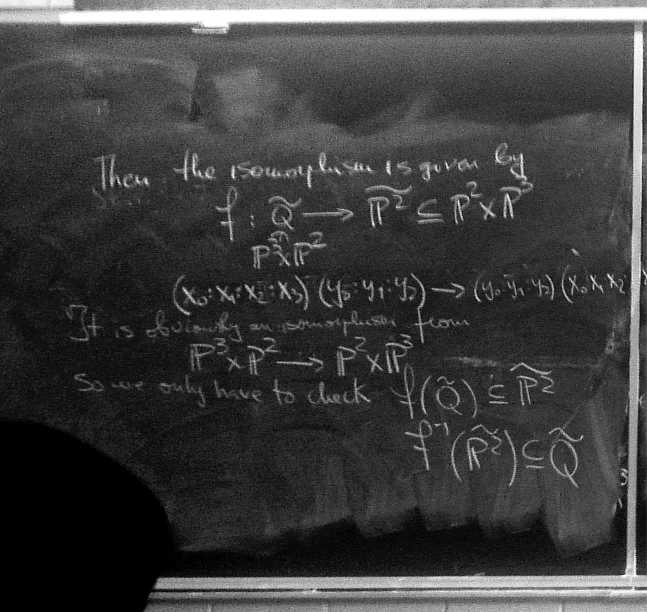 Then the isomorphism is given by
f : Q̃ → P̃² ⊆ P² × P³
∩
P³ × P²
(x₀ : x₁ : x₂ : x₃) (y₀ : y₁ : y₂) → (y₀ : y₁ : y₂) (x₀ x₁ x₂
It is obviously an isomorphism from
P³ × P² → P² × P³
So we only have to check f(Q̃) ⊆ P̃²
f⁻¹(P̃²) ⊆ Q̃